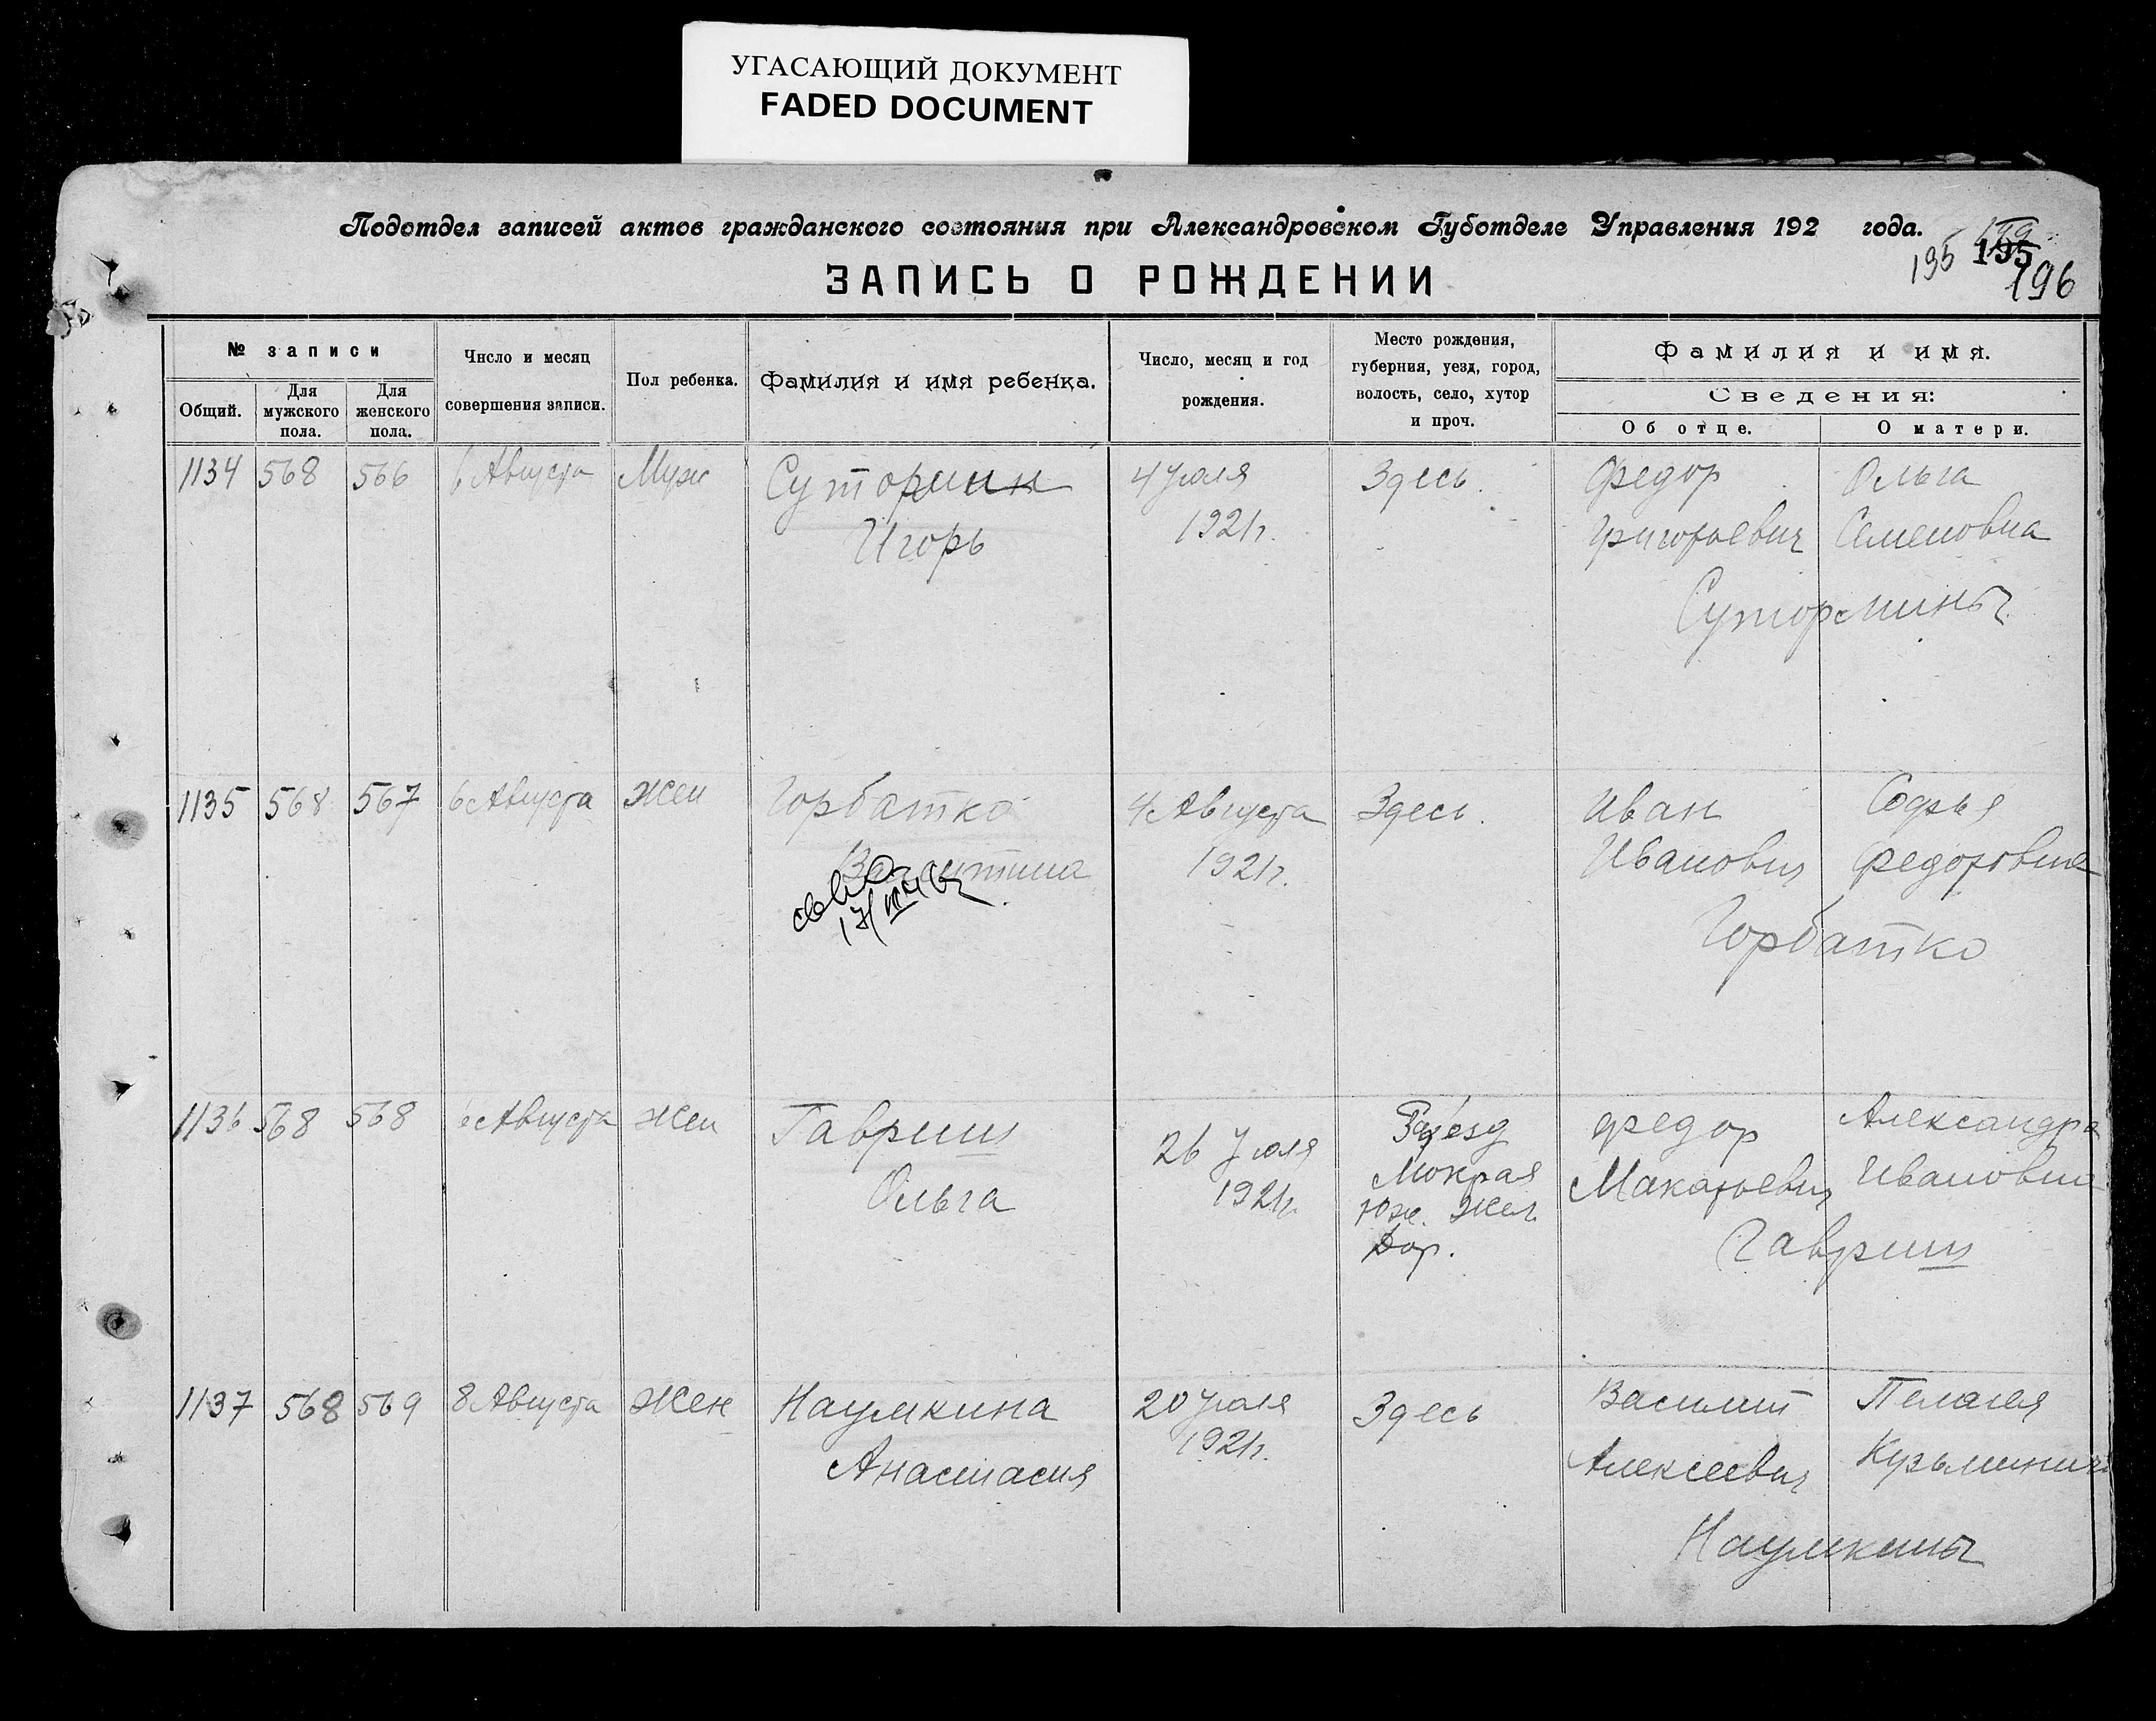 УГАСАЮЩИЙ ДОКУМЕНТ
FADED DOCUMENT
Подотдел записей актов гражданского состояния при Александровском Губотделе Управления 192 года.
195
195
196
ЗАПИСЬ О РОЖДЕНИИ
№ записи
Общий.
Для мужского пола.
Для женского пола.
Число и месяц совершения записи.
Пол ребенка.
Фамилия и имя ребенка.
Число, месяц и год рождения.
Место рождения, губерния, уезд, город, волость, село, хутор и проч.
Фамилия и имя.
Сведения:
Об отце.
О матери.
1134 568 566 6 Августа Муж Сутормин 4 Июля Здесь. Федор Ольга
Игорь 1921г. Григорьевич Семеновна
Сутормины
1135 568 567 6 Августа Жен Горбатко 4 Августа Здесь. Иван Софья
Валентина 1921г. Иванович Федоровна
Горбатко
1136 568 568 6 Августа Жен Гавриш 26 Июля Раз'езд Федор Александра
Ольга 1921г. Мокрая Макарьевич Ивановна
Юж. Жел. Гавриш
Дор.
1137 568 569 8 Августа Жен Наумкина 20 Июля Здесь Василий Пелагея
Анастасия 1921г. Алексеевич
Наумкины